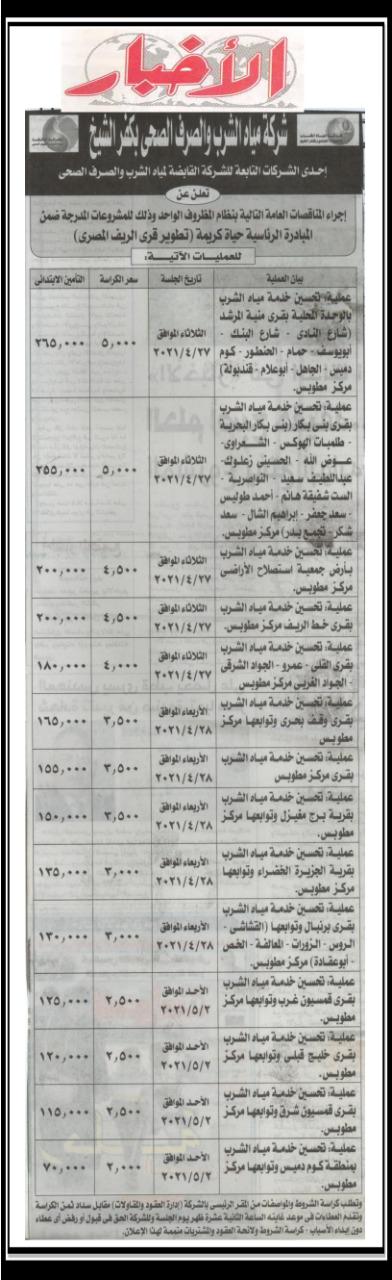 الأخبار
شركة مياه الشرب والصرف الصحى بكفر الشيخ
إحدى الشركات التابعة للشركة القابضة لمياه الشرب والصرف الصحى
تعلن عن
إجراء المناقصات العامة التالية بنظام المظروف الواحد وذلك للمشروعات المدرجة ضمن
المبادرة الرئاسية حياة كريمة (تطوير قرى الريف المصرى)
للعمليات الآتية:
بيان العملية تاريخ الجلسة سعر الكراسة التأمين الابتدائى
عملية: تحسين خدمة مياه الشرب
بالوحدة المحلية بقرى منية المرشد
(شارع النادى - شارع البنك -
أبويوسف - حمام - الحنطور - كوم
دميس - الجاهل - أبوعلام - قنديولة)
مركز مطوبس.
الثلاثاء الموافق
٢٠٢١/٤/٢٧
٥,٠٠٠
٢٦٥,٠٠٠
عملية: تحسين خدمة مياه الشرب
بقرى بنى بكار (بنى بكار البحرية
- طلمبات الهوكس - الشعراوى -
عوض الله - الحسينى زعلوك -
عبداللطيف سعيد - النواصرية -
الست شفيقة هانم - أحمد طوليس
- سعد جعفر - إبراهيم الشال - سعد
شكر - تجمع بدر) مركز مطوبس.
الثلاثاء الموافق
٢٠٢١/٤/٢٧
٥,٠٠٠
٢٥٥,٠٠٠
عملية: تحسين خدمة مياه الشرب
بأرض جمعية استصلاح الأراضى
مركز مطوبس.
الثلاثاء الموافق
٢٠٢١/٤/٢٧
٤,٥٠٠
٢٠٠,٠٠٠
عملية: تحسين خدمة مياه الشرب
بقرى خط الريف مركز مطوبس.
الثلاثاء الموافق
٢٠٢١/٤/٢٧
٤,٥٠٠
٢٠٠,٠٠٠
عملية: تحسين خدمة مياه الشرب
بقرى القلى - عمرو - الجواد الشرقى
- الجواد الغربى مركز مطوبس
الثلاثاء الموافق
٢٠٢١/٤/٢٧
٤,٠٠٠
١٨٠,٠٠٠
عملية: تحسين خدمة مياه الشرب
بقرى وقف بحرى وتوابعها مركز
مطوبس
الأربعاء الموافق
٢٠٢١/٤/٢٨
٣,٥٠٠
١٦٥,٠٠٠
عملية: تحسين خدمة مياه الشرب
بقرى مركز مطوبس
الأربعاء الموافق
٢٠٢١/٤/٢٨
٣,٥٠٠
١٥٥,٠٠٠
عملية: تحسين خدمة مياه الشرب
بقرية برج مغيزل وتوابعها مركز
مطوبس.
الأربعاء الموافق
٢٠٢١/٤/٢٨
٣,٥٠٠
١٥٠,٠٠٠
عملية: تحسين خدمة مياه الشرب
بقرية الجزيرة الخضراء وتوابعها
مركز مطوبس.
الأربعاء الموافق
٢٠٢١/٤/٢٨
٣,٠٠٠
١٣٥,٠٠٠
عملية: تحسين خدمة مياه الشرب
بقرى برنبال وتوابعها (القشاشى -
الروس - الزورات - المعالفة - الخص
- أبوعقادة) مركز مطوبس.
الأربعاء الموافق
٢٠٢١/٤/٢٨
٣,٠٠٠
١٣٠,٠٠٠
عملية: تحسين خدمة مياه الشرب
بقرى قمسيون غرب وتوابعها مركز
مطوبس.
الأحد الموافق
٢٠٢١/٥/٢
٢,٥٠٠
١٢٥,٠٠٠
عملية: تحسين خدمة مياه الشرب
بقرى خليج قبلى وتوابعها مركز
مطوبس.
الأحد الموافق
٢٠٢١/٥/٢
٢,٥٠٠
١٢٠,٠٠٠
عملية: تحسين خدمة مياه الشرب
بقرى قمسيون شرق وتوابعها مركز
مطوبس.
الأحد الموافق
٢٠٢١/٥/٢
٢,٥٠٠
١١٥,٠٠٠
عملية: تحسين خدمة مياه الشرب
بمنطقة كوم دميس وتوابعها مركز
مطوبس.
الأحد الموافق
٢٠٢١/٥/٢
٢,٠٠٠
٧٠,٠٠٠
وتطلب كراسة الشروط والمواصفات من المقر الرئيسى بالشركة (إدارة العقود والمقاولات) مقابل سداد ثمن الكراسة
وتقدم العطاءات فى موعد غايته الساعة الثانية عشرة ظهر يوم الجلسة وللشركة الحق فى قبول أو رفض أى عطاء
دون إبداء الأسباب - كراسة الشروط ولائحة العقود والمشتريات متممة لهذا الإعلان.